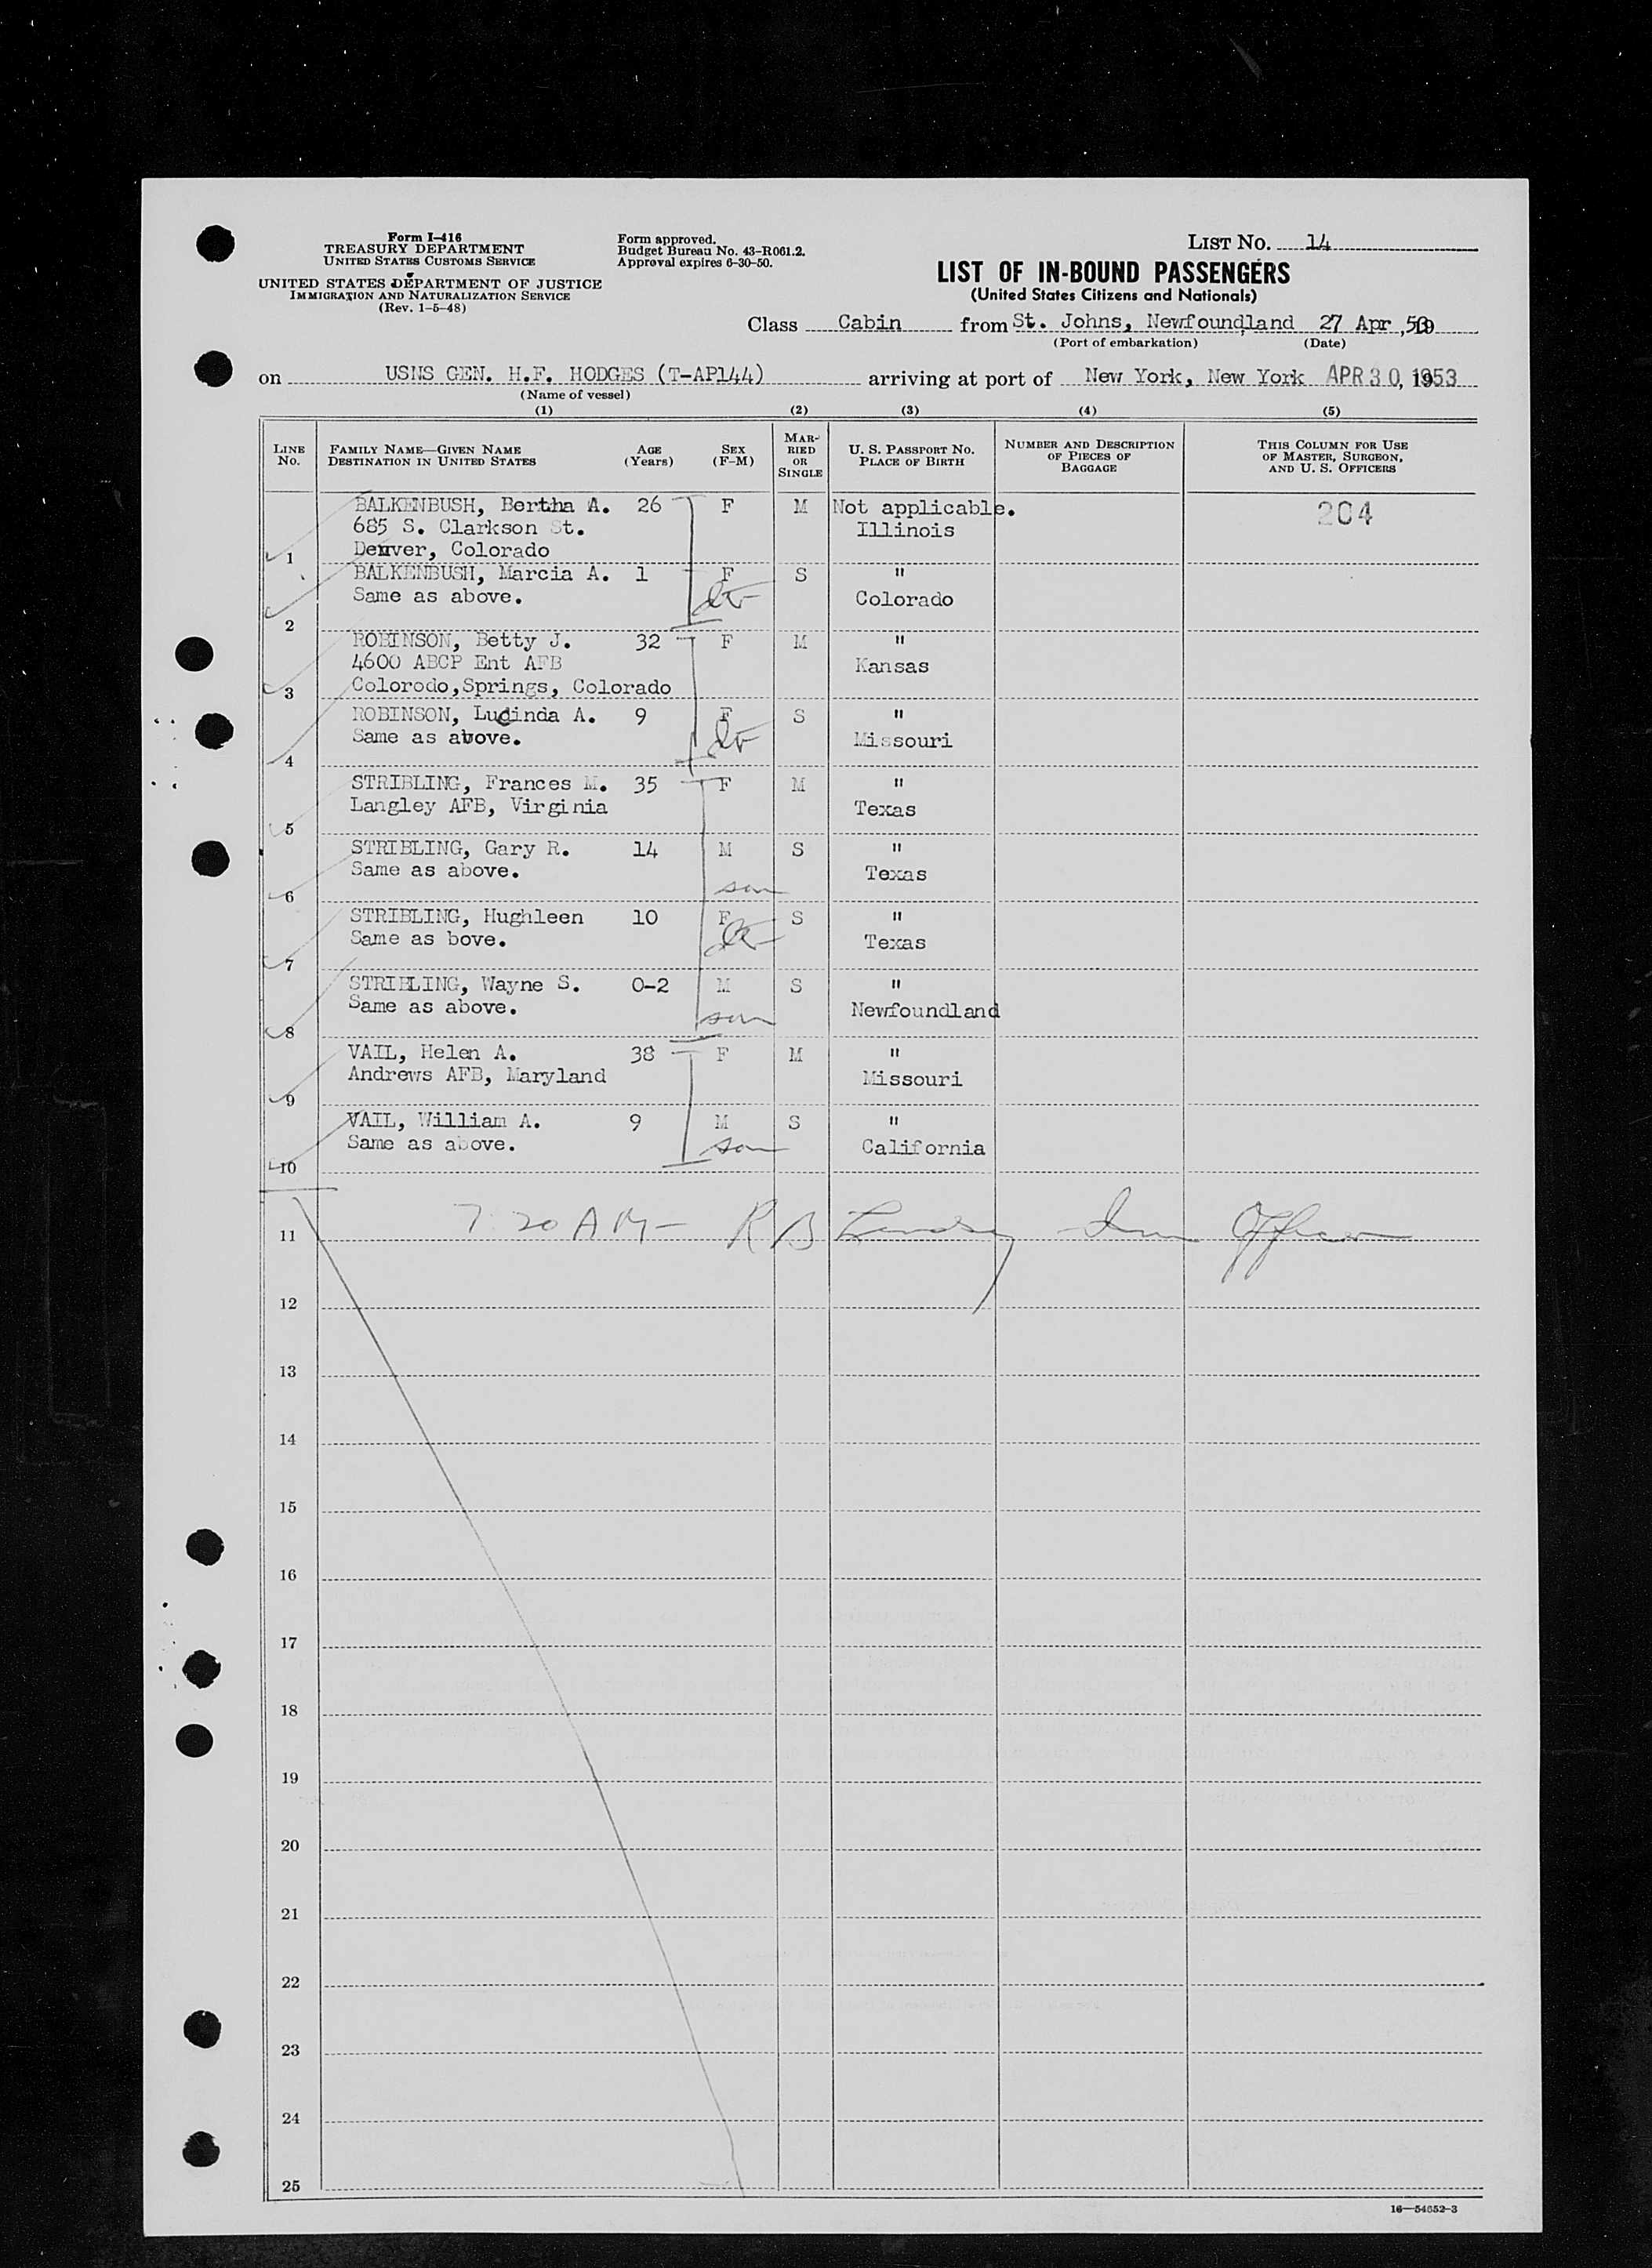 Form I-416
TREASURY DEPARTMENT
UNITED STATES CUSTOMS SERVICE
UNITED STATES DEPARTMENT OF JUSTICE
IMMIGRATION AND NATURALIZATION SERVICE
(Rev. 1-5-48)
Form approved.
Budget Bureau No. 43-R061.2.
Approval expires 6-30-50.
LIST NO. 14
LIST OF IN-BOUND PASSENGERS
(United States Citizens and Nationals)
Class Cabin from St. Johns, Newfoundland 27 Apr, 53
(Port of embarkation) (Date)
on USNS GEN. H.F. HODGES (T-AP144) arriving at port of New York, New York APR 30, 1953
(Name of vessel)
(1) (2) (3) (4) (5)
LINE NO. FAMILY NAME—GIVEN NAME DESTINATION IN UNITED STATES AGE (Years) SEX (F-M) MARRIED OR SINGLE U. S. PASSPORT NO. PLACE OF BIRTH NUMBER AND DESCRIPTION OF PIECES OF BAGGAGE THIS COLUMN FOR USE OF MASTER, SURGEON, AND U. S. OFFICERS
BALKENBUSH, Bertha A. 26 F M Not applicable. 204
685 S. Clarkson St. Illinois
1 Denver, Colorado
BALKENBUSH, Marcia A. 1 F S "
Same as above. Colorado
2
ROBINSON, Betty J. 32 F M "
4600 ABCP Ent AFB Kansas
3 Colorodo,Springs, Colorado
ROBINSON, Lucinda A. 9 F S "
Same as above. Missouri
4
STRIBLING, Frances M. 35 F M "
Langley AFB, Virginia Texas
5
STRIBLING, Gary R. 14 M S "
Same as above. Texas
6 son
STRIBLING, Hughleen 10 F S "
Same as bove. Texas
7
STRIBLING, Wayne S. 0-2 M S "
Same as above. son Newfoundland
8
VAIL, Helen A. 38 F M "
Andrews AFB, Maryland Missouri
9
VAIL, William A. 9 M S "
Same as above. son California
10
11 7 20 AM - R B Imm Officer
12
13
14
15
16
17
18
19
20
21
22
23
24
25
16—54652-3